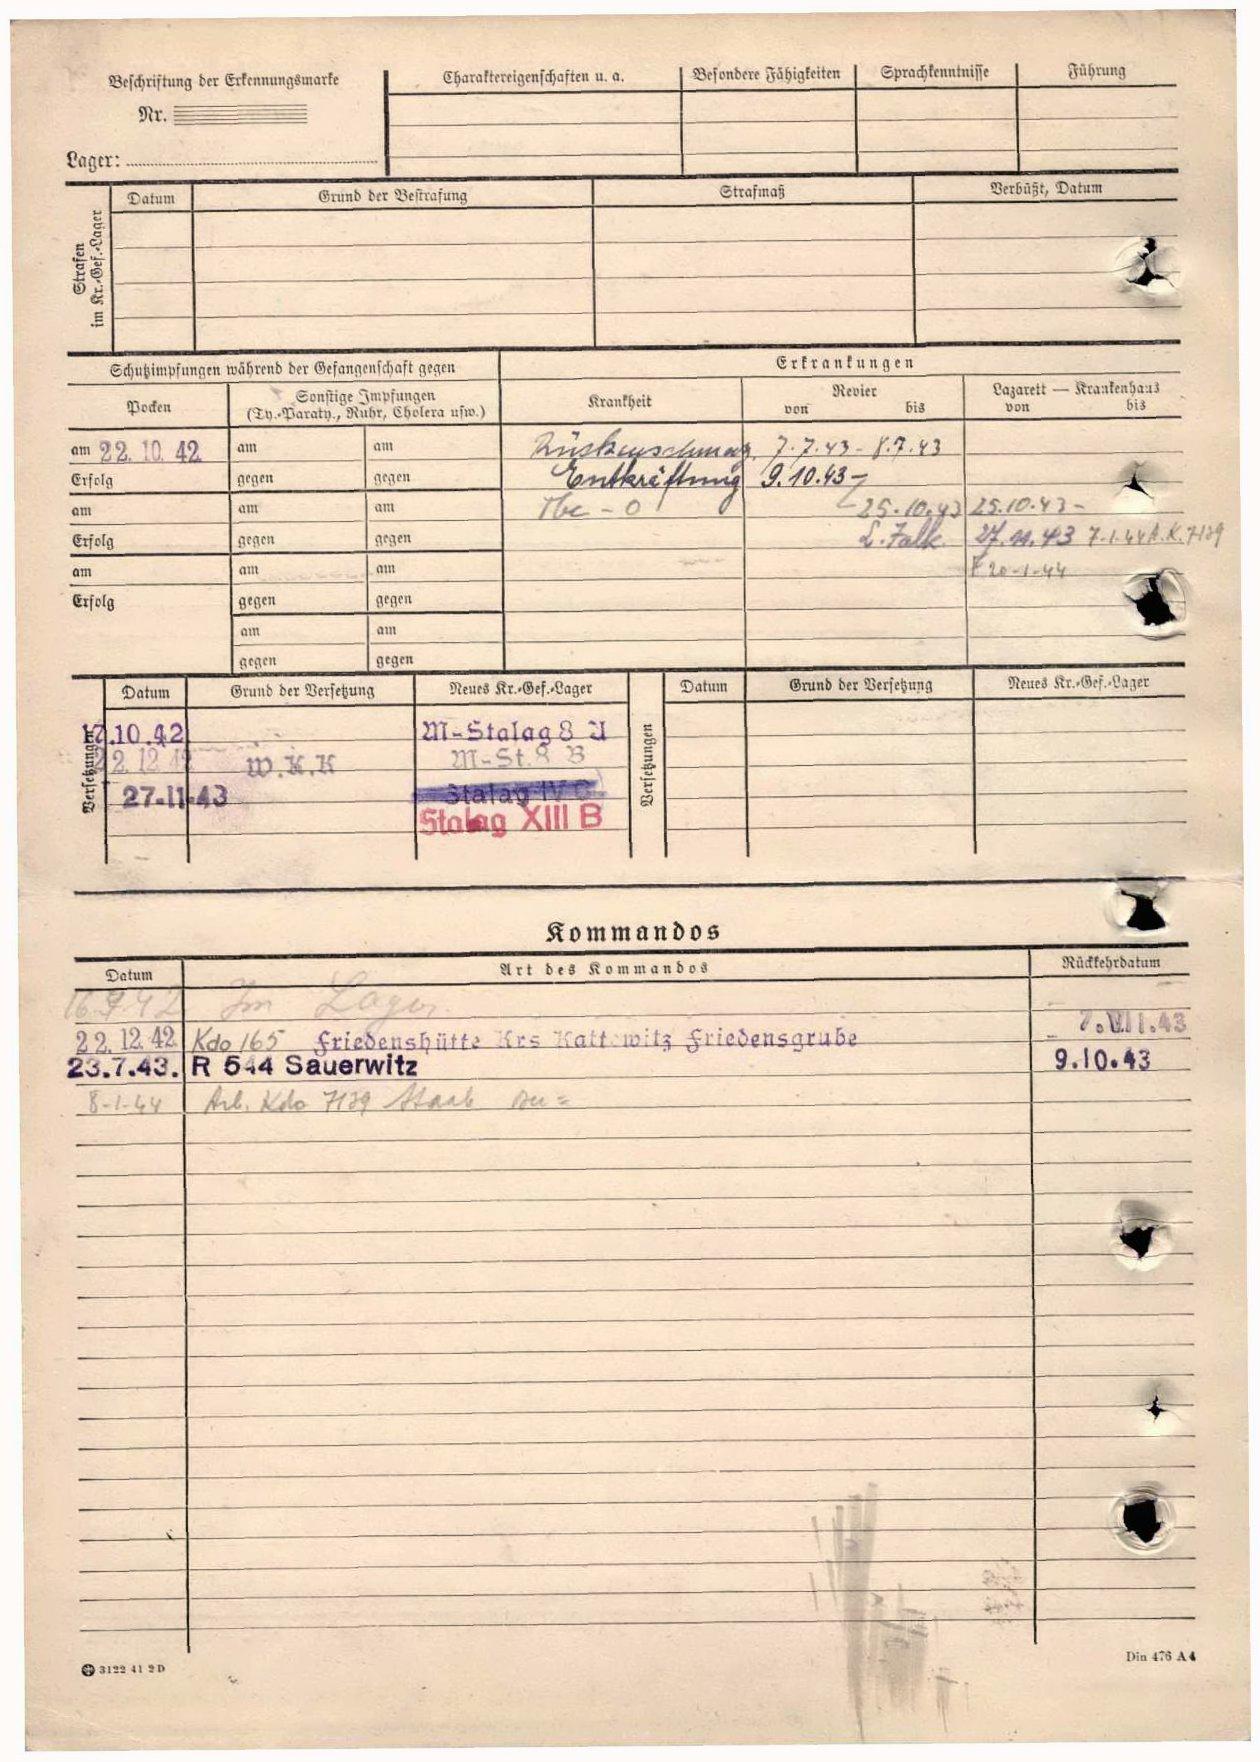 Beschriftung der Erkennungsmarke
Nr.
Lager:
Charaktereigenschaften u. a.
Besondere Fähigkeiten
Sprachkenntnisse
Führung
Strafen im Kr.-Gef.-Lager
Datum
Grund der Bestrafung
Strafmaß
Verbüßt, Datum
Schutzimpfungen während der Gefangenschaft gegen
Erkrankungen
Pocken
Sonstige Impfungen
(Ty.-Paraty., Ruhr, Cholera usw.)
Krankheit
Revier
von bis
Lazarett — Krankenhaus
von bis
am 22. 10. 42 am am
Erfolg gegen gegen
am am am
Erfolg gegen gegen
am am am
Erfolg gegen gegen
am am
gegen gegen
7.7.43 - 8.7.43
Entkräftung 9.10.43 -
Tbc - O 25.10.43 25.10.43 -
27.11.43 7-1-44 A.K. 7139
20-1-44
Versetzungen
Datum Grund der Versetzung Neues Kr.-Gef.-Lager
17.10.42 M-Stalag 8 A
22.12.42 W.K.K M-St. 8 B
27-11-43 Stalag IV C
Stalag XIII B
Versetzungen
Datum Grund der Versetzung Neues Kr.-Gef.-Lager
Kommandos
Datum Art des Kommandos Rückkehrdatum
16.9.42 Im Lager
22.12.42 Kdo 165 Friedenshütte Krs Kattowitz Friedensgrube 7.VII.43
23.7.43. R 544 Sauerwitz 9.10.43
8-1-44 Arb. Kdo 7139 Staab
3122 41 2D
Din 476 A 4